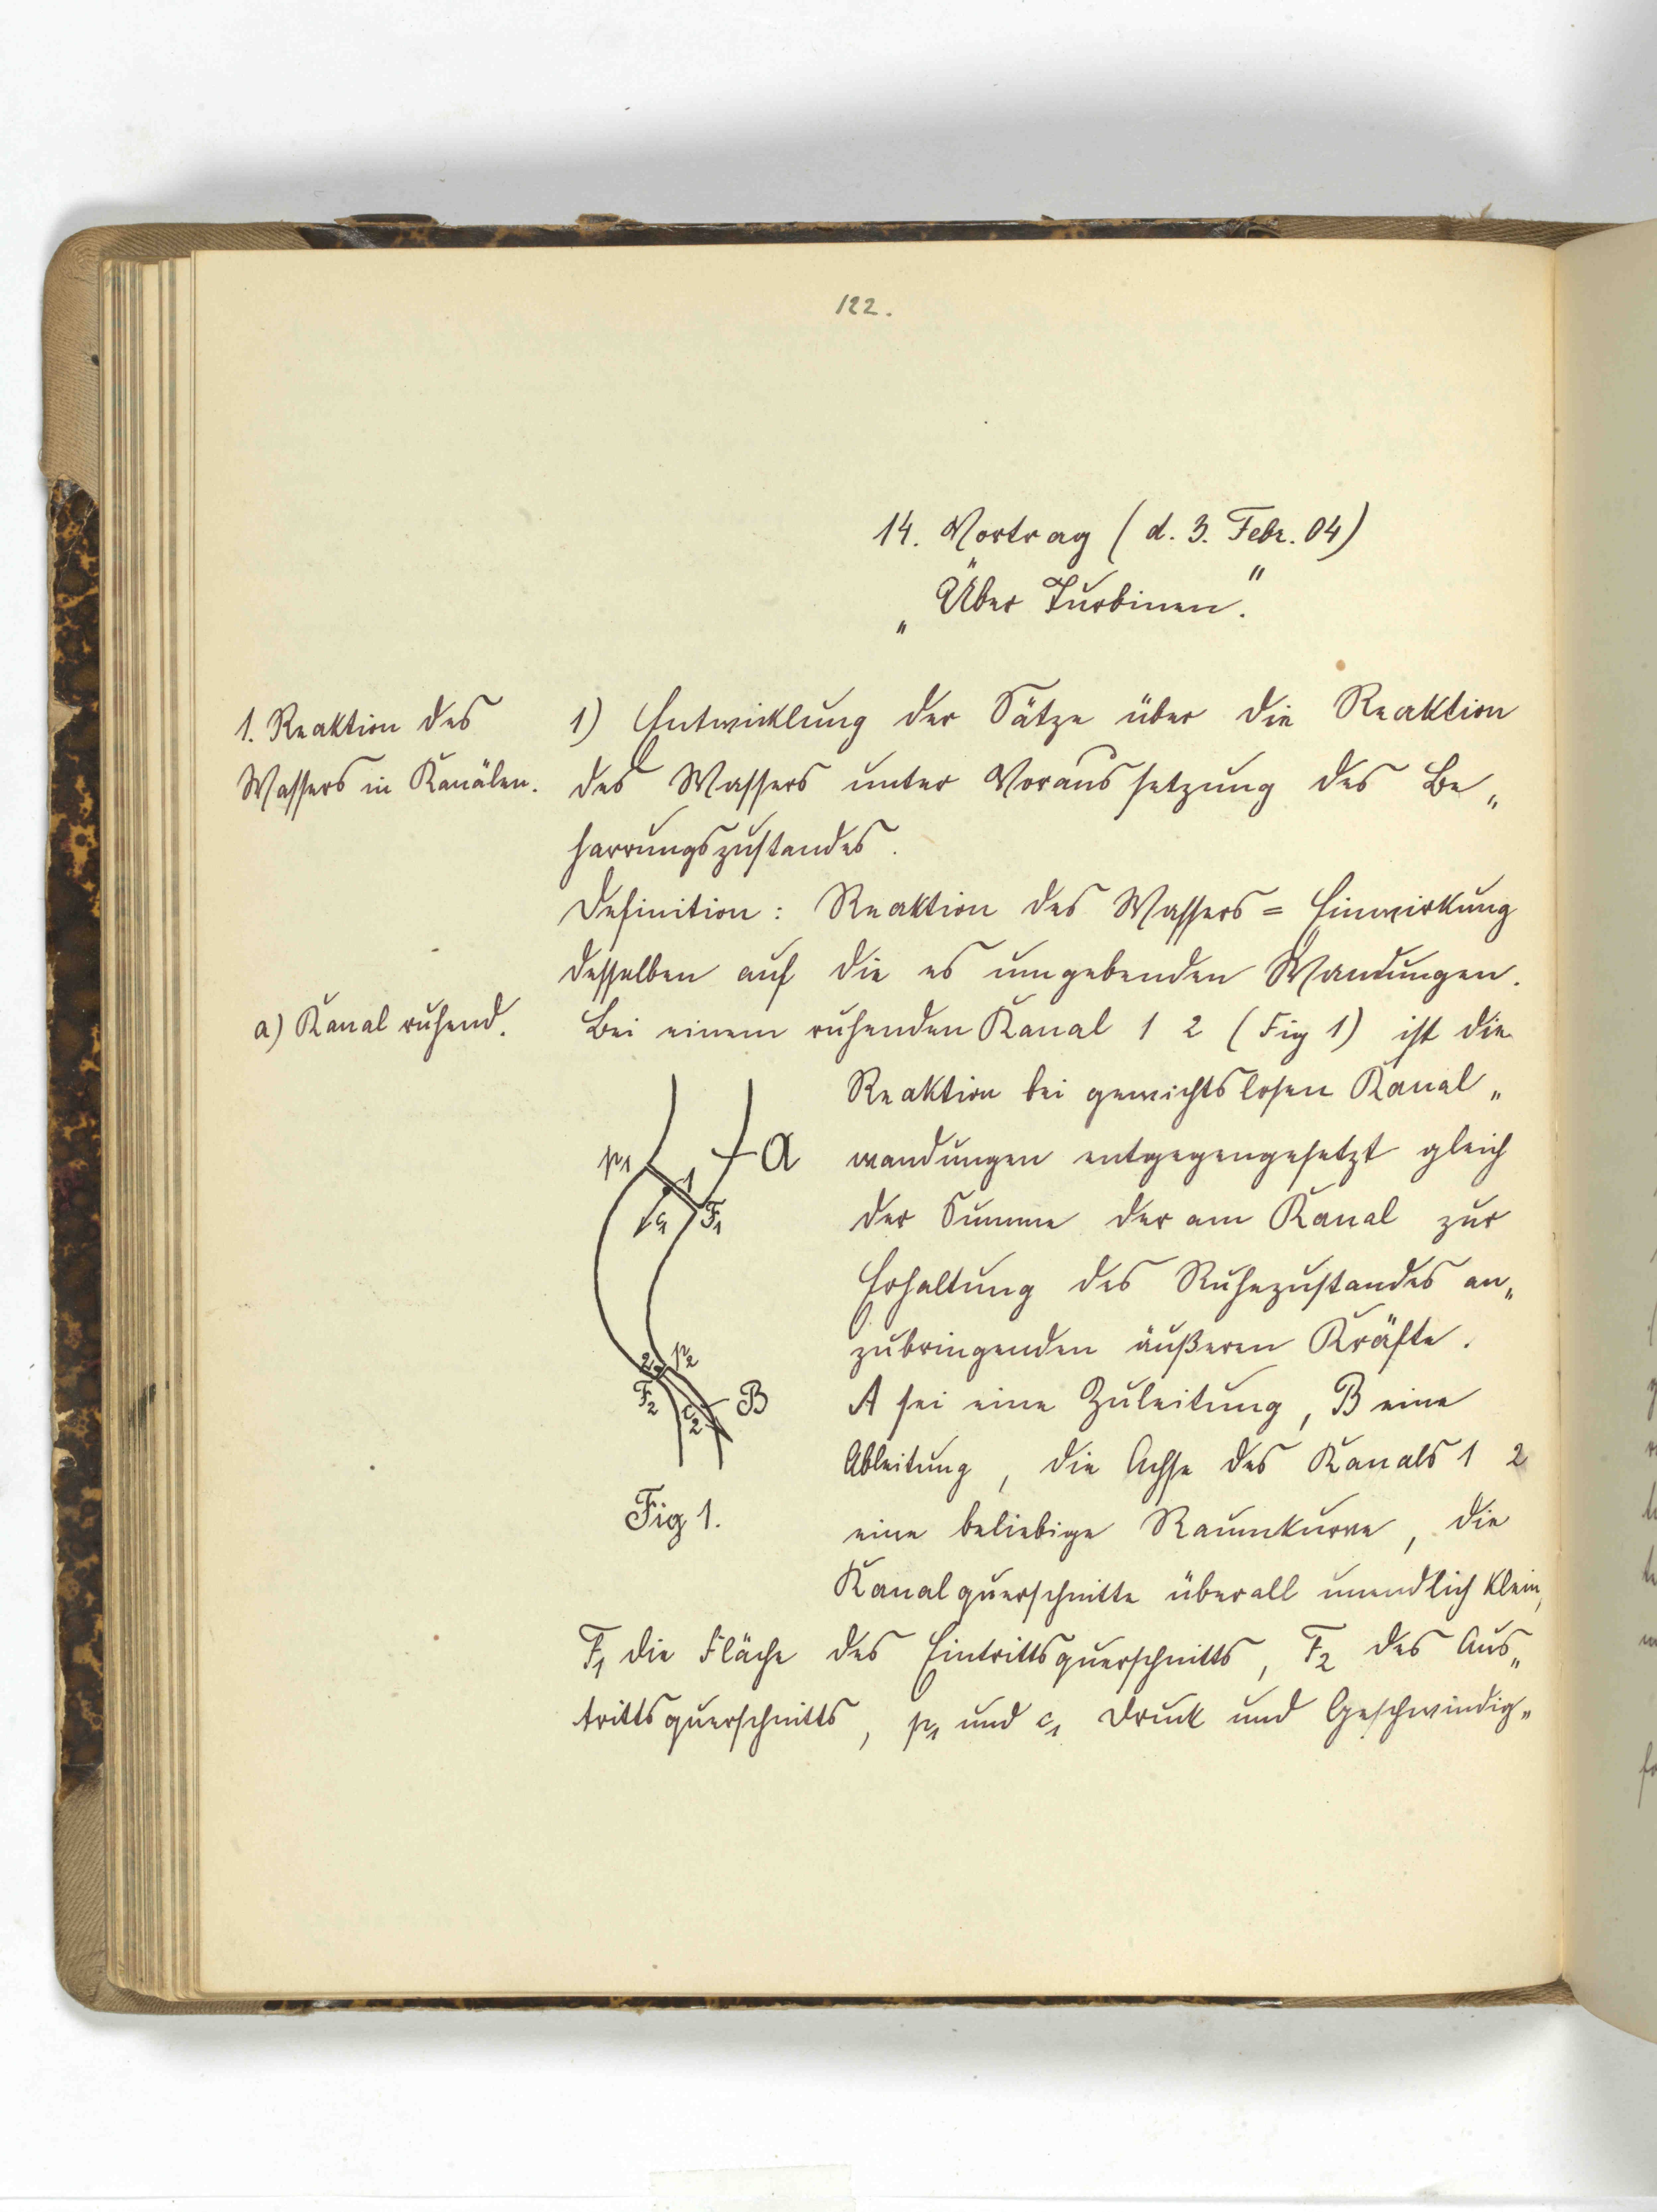 122.
14. Vortrag (d. 3. Febr. 04)
„Über Turbinen."
1. Reaktion des
Wassers in Kanälen.
1) Entwicklung der Sätze über die Reaktion
des Wassers unter Voraussetzung des Be„
harrungszustandes.
Definition: Reaktion des Wassers = Einwirkung
desselben auf die es umgebenden Wandungen.
a) Kanal ruhend.
Bei einem ruhenden Kanal 1 2 (Fig 1) ist die
Reaktion bei gewichtslosen Kanal„
wandungen entgegengesetzt gleich
der Summe der am Kanal zur
Erhaltung des Ruhezustandes an„
zubringenden äußeren Kräfte.
A sei eine Zuleitung, B eine
Ableitung, die Achse des Kanals 1 2
eine beliebige Raumkurve, die
Kanalquerschnitte überall unendlich klein,
F₁ die Fläche des Eintrittsquerschnitts, F₂ des Aus„
trittsquerschnitts, p₁ und c₁ Druck und Geschwindig„
p₁
A
1
c₁
F₁
2
p₂
F₂
c₂
B
Fig 1.